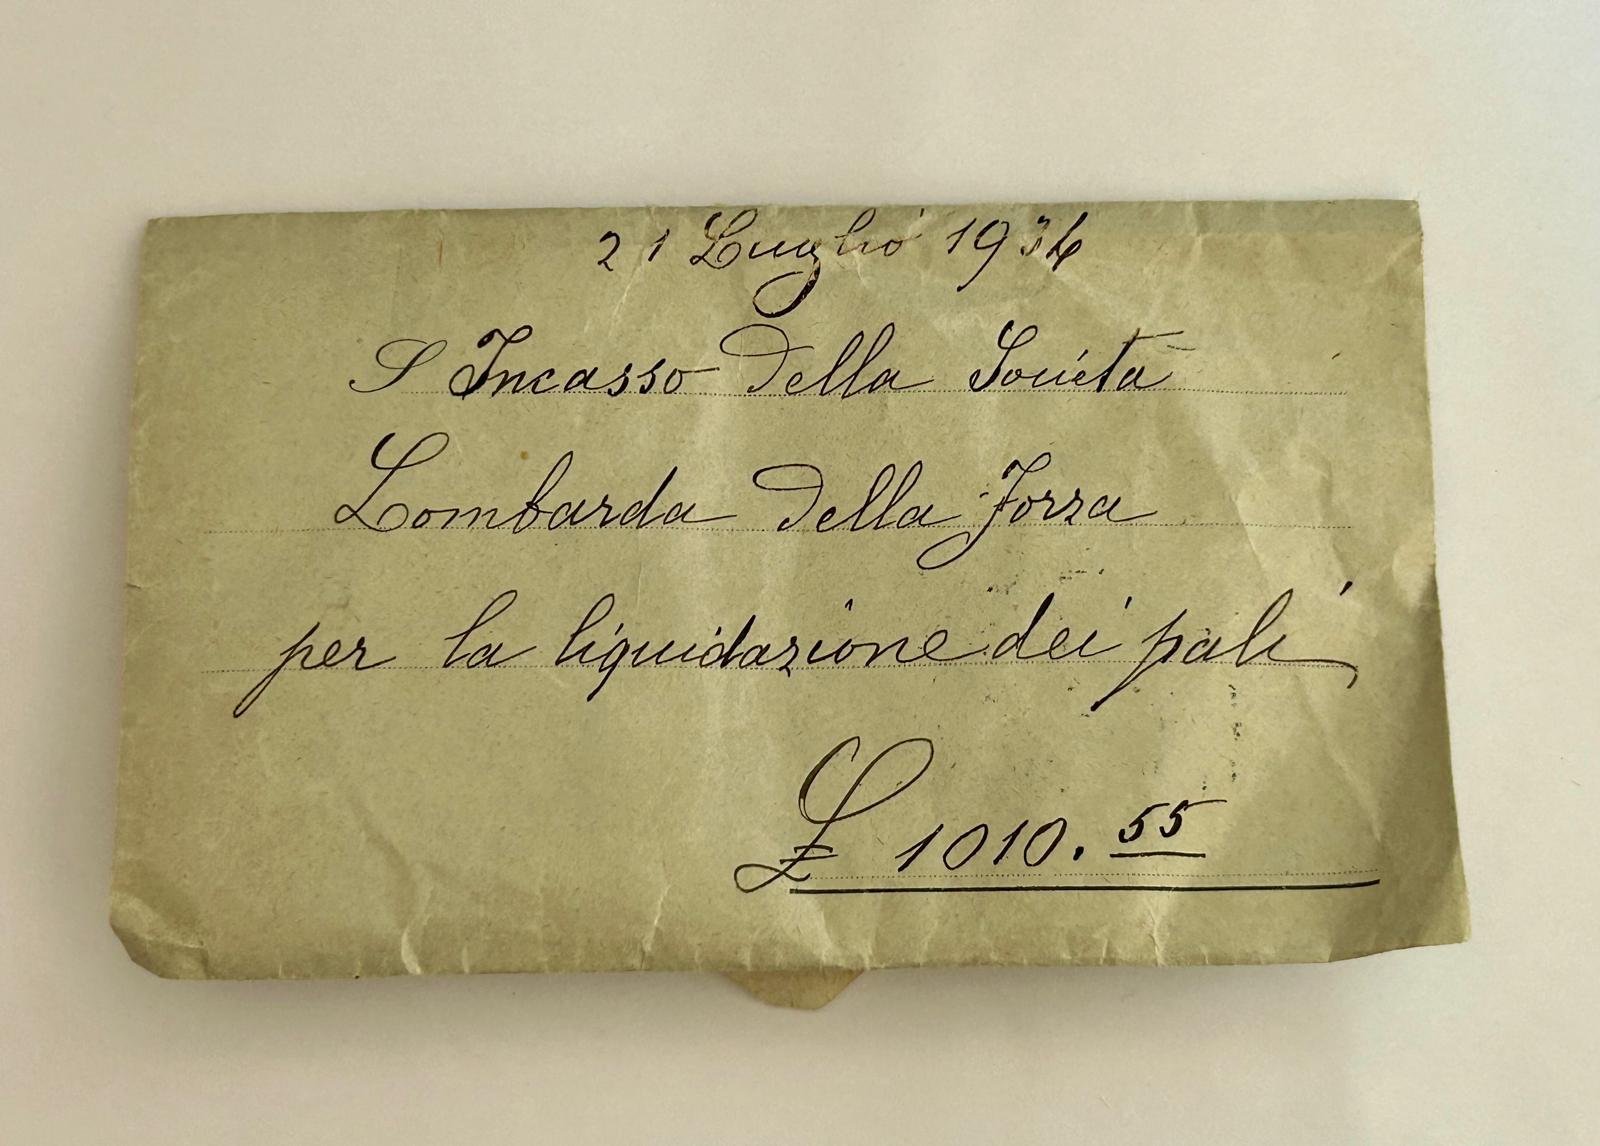 21 Luglio 1934
S Incasso della Società
Lombarda della Forza
per la liquidazione dei pali
£ 1010.55